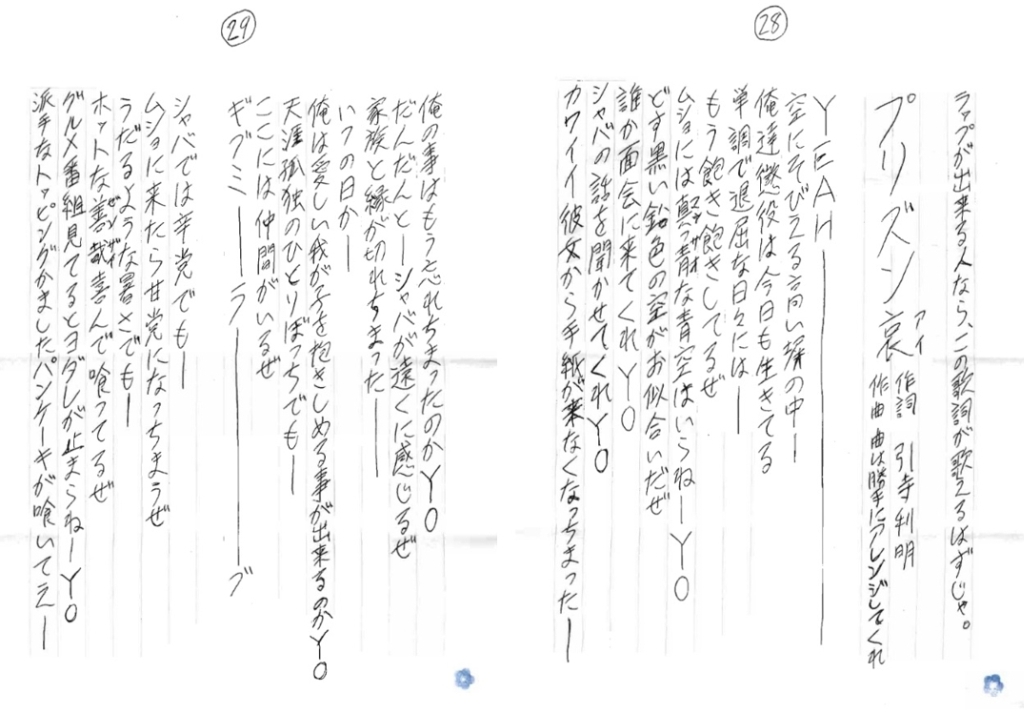 ㉘
ラップが出来る人なら、この歌詞が歌えるはずじゃ。
プリズン哀 アイ
作詞 引寺利明
作曲 曲は勝手にアレンジしてくれ
YEAH――――
空にそびえる高い塀の中―
俺達懲役は今日も生きてる
単調で退屈な日々には―
もう飽き飽きしてるぜ
ムショには真っ青な青空はいらねーYO
どす黒い鉛色の空がお似合いだぜ
誰か面会に来てくれYO
シャバの話を聞かせてくれYO
カワイイ彼女から手紙が来なくなっちまったー
㉙
俺の事はもう忘れちまったのかYO
だんだんとーシャバが遠くに感じるぜ
家族と縁が切れちまったー
いつの日かー
俺は愛しい我が子を抱きしめる事が出来るのかYO
天涯孤独のひとりぼっちでもー
ここには仲間がいるぜ
ギブミー――ラ――――ブ
シャバでは辛党でもー
ムショに来たら甘党になっちまうぜ
うだるような暑さでもー
ホットな善哉 ゼンザイ 喜んで喰ってるぜ
グルメ番組見てるとヨダレが止まらねーYO
派手なトッピングかましたパンケーキが喰いてえー